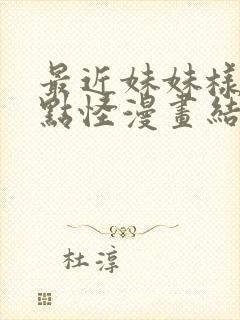 最近妹妹樣
點怪漫畫結
杜淳